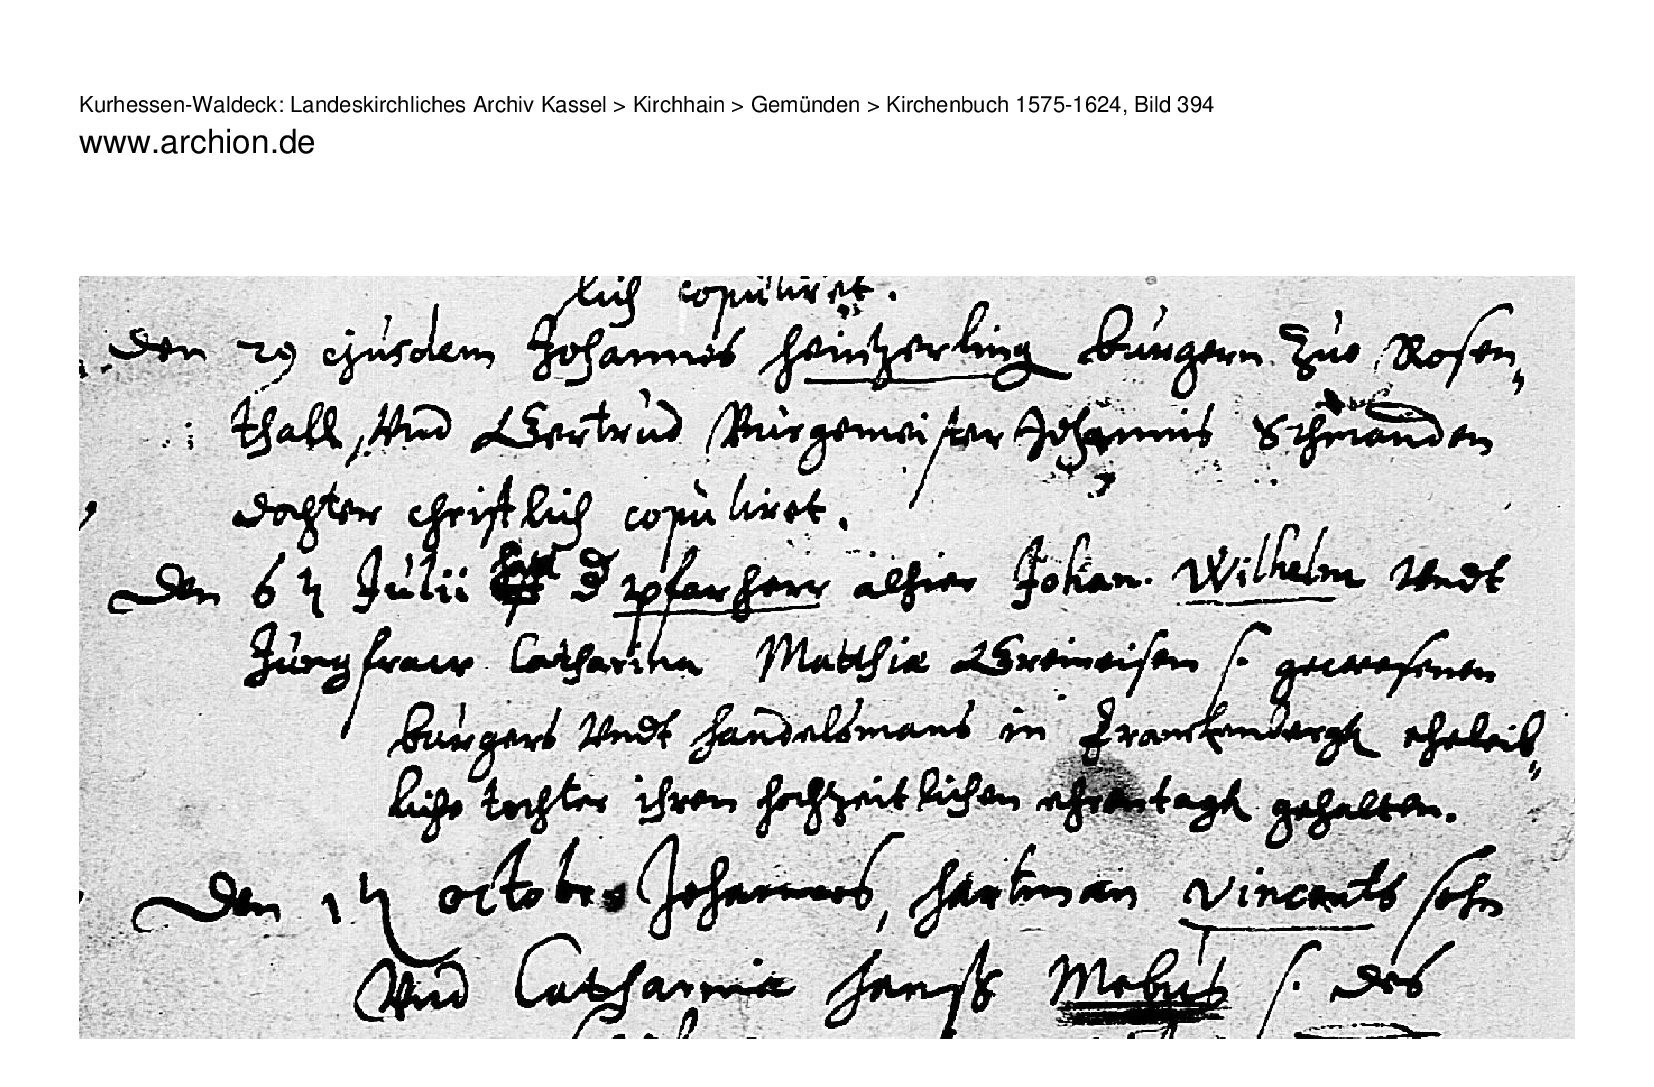 Kurhessen-Waldeck: Landeskirchliches Archiv Kassel > Kirchhain > Gemünden > Kirchenbuch 1575-1624, Bild 394
www.archion.de
lich copuliret.
Den 29 ejusdem Johannes Heintzerling burgern zue Rosen„
thall, Vnd Gertrud Burgemeister Johannis Schwanden
dochter christlich copuliret.
Den 6 Julii hatt d pfarherr alhier Johan. Wilhelm Vndt
Jungfraw Catharina Matthiæ Greineisen s. gewesenen
burgers Vndt handelsmans in Franckenbergk eheleib„
liche tochter ihren hochzeitlichen ehrentagk gehalten.
Den 14 octobr. Johannes, hartman Vincents sohn
Vnd Catharina hanß Mebus s. des